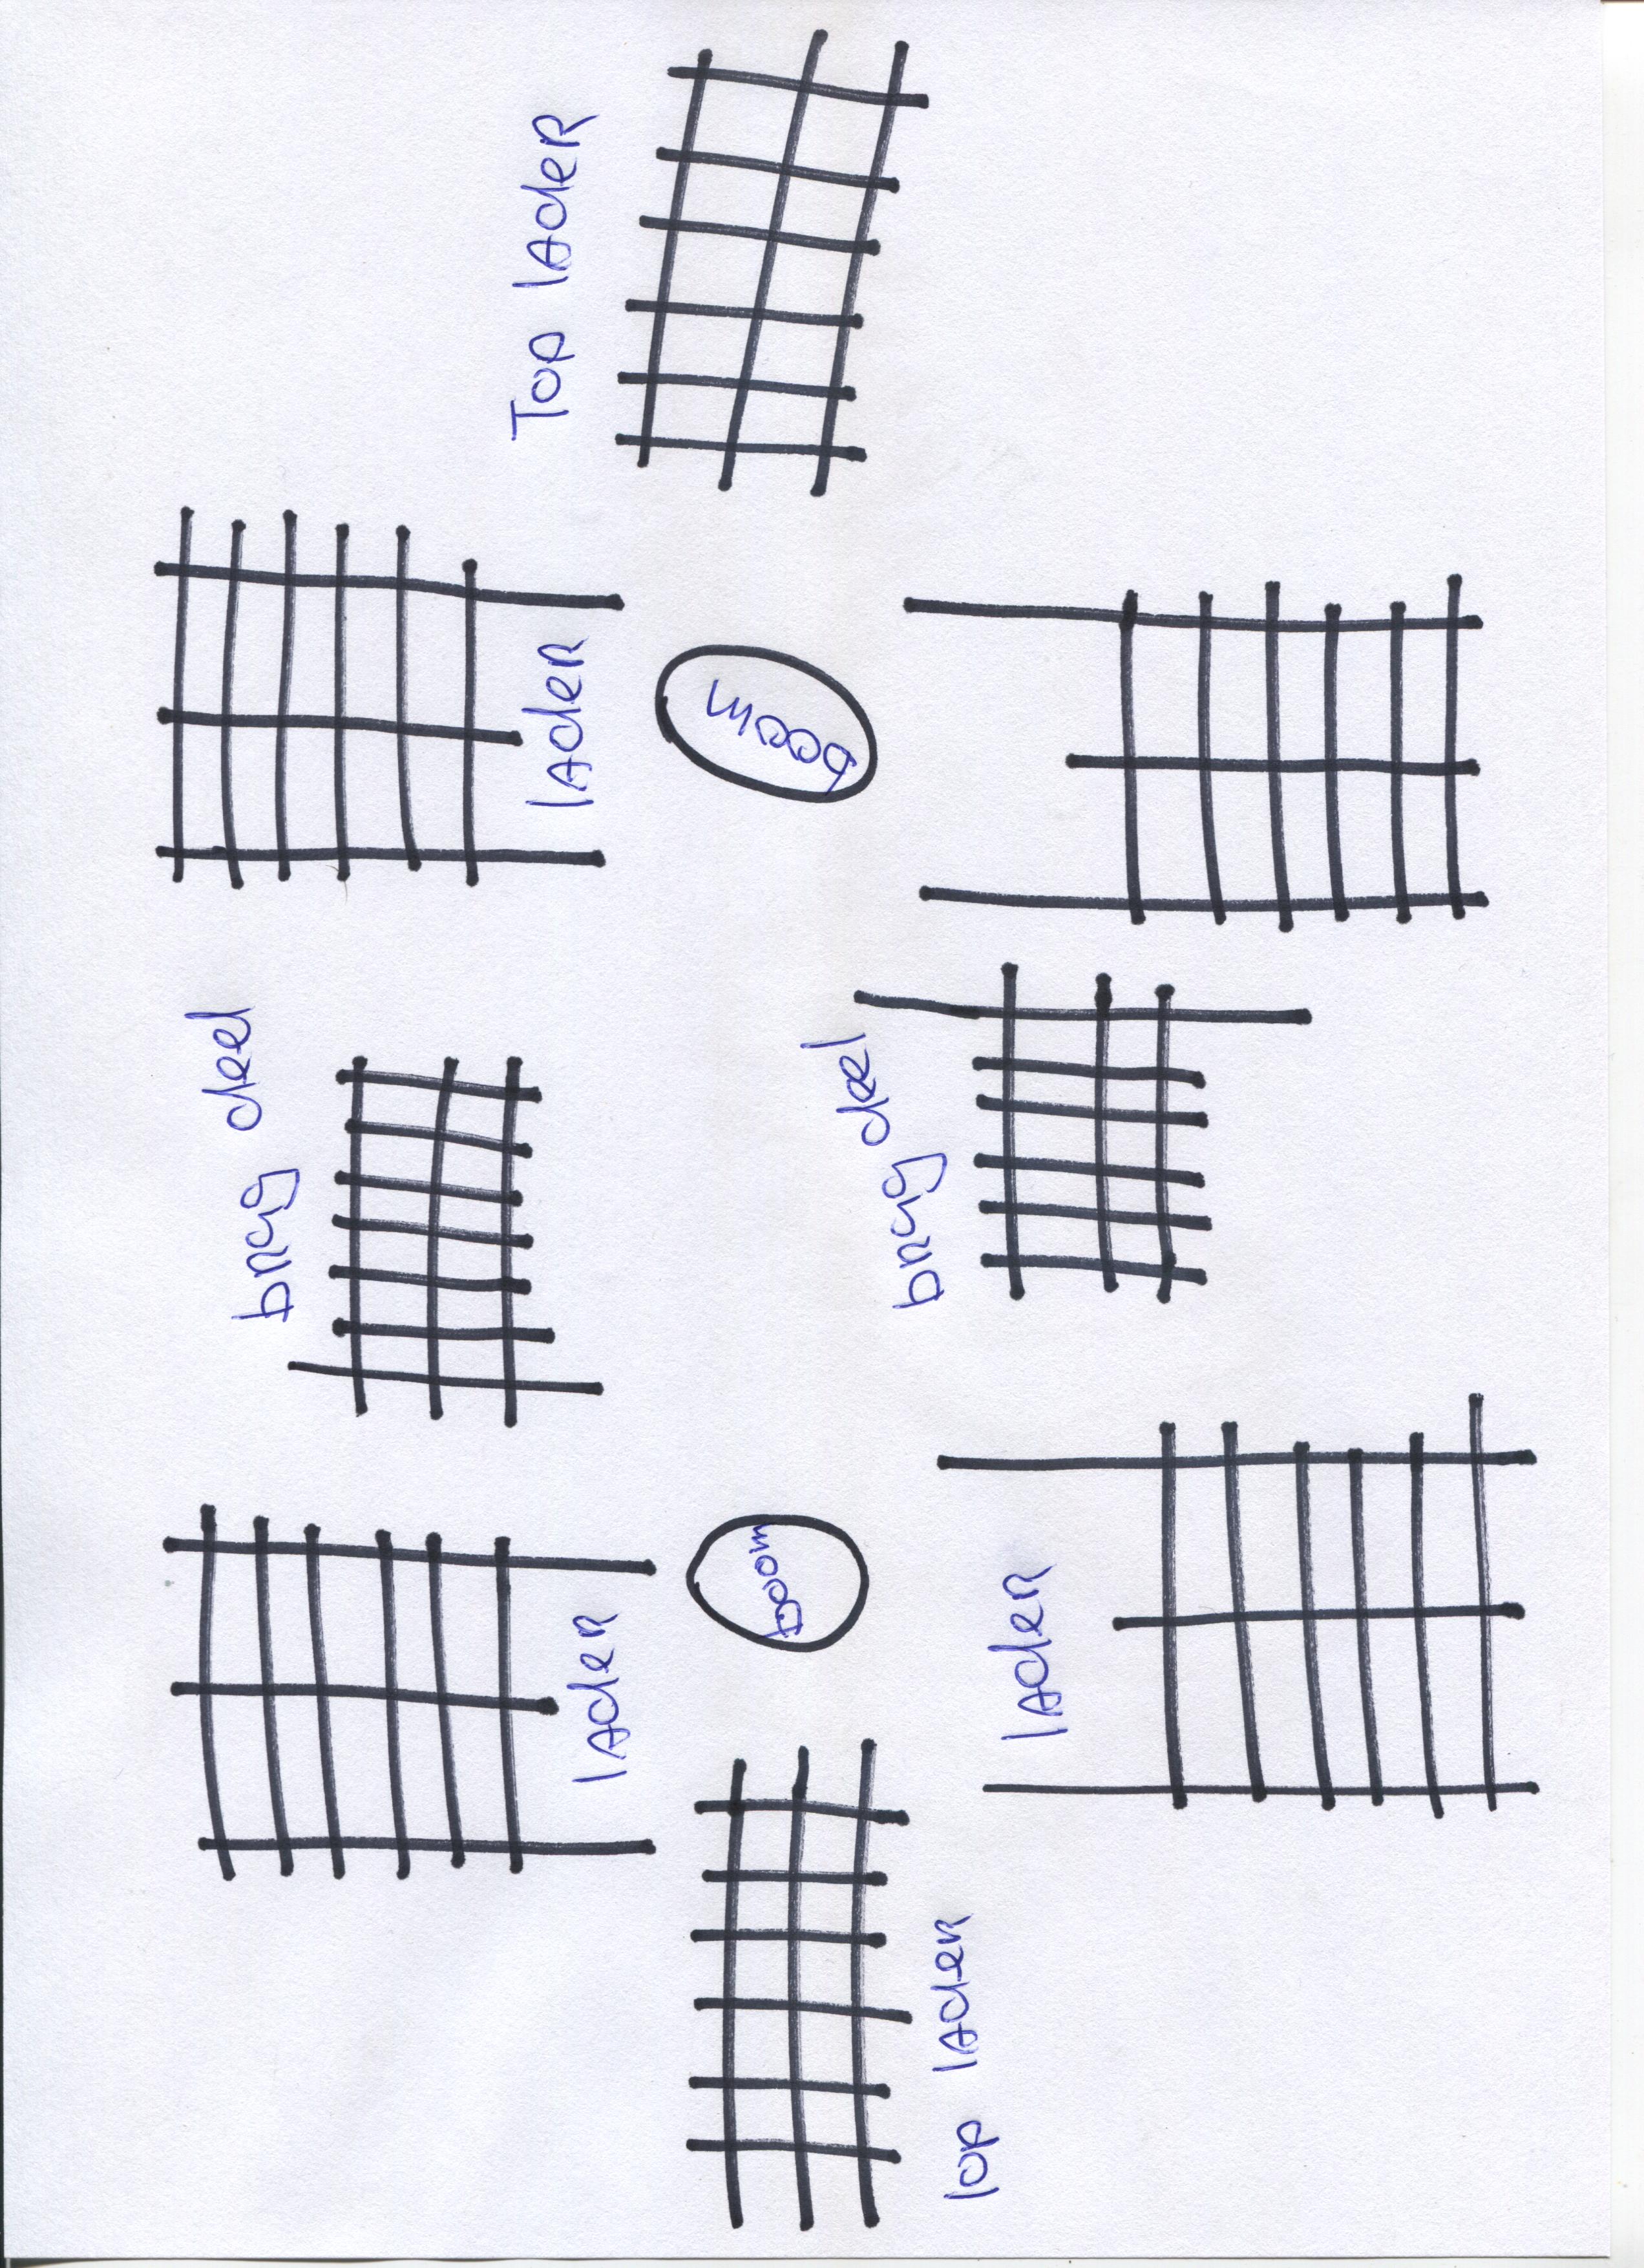 Top lAdeR
lAdeR
boom
brug deel
brug deel
lAder
boom
lAder
top lAder